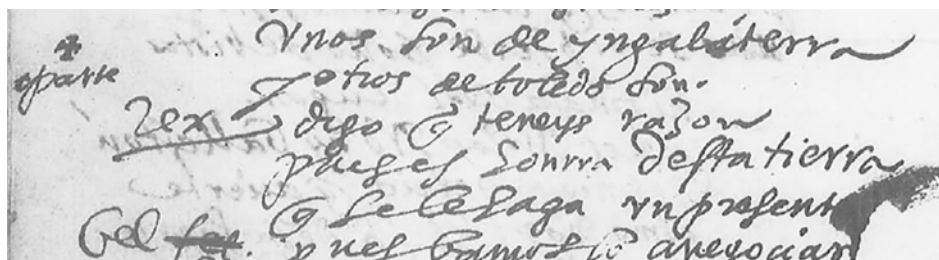 Vnos son de yngalaterra
aparte y otros de toledo son.
Rex digo q̃ teneys razon
pues es honrra desta tierra
q̃ se le haga vn present
Bel pues bamos a negociar